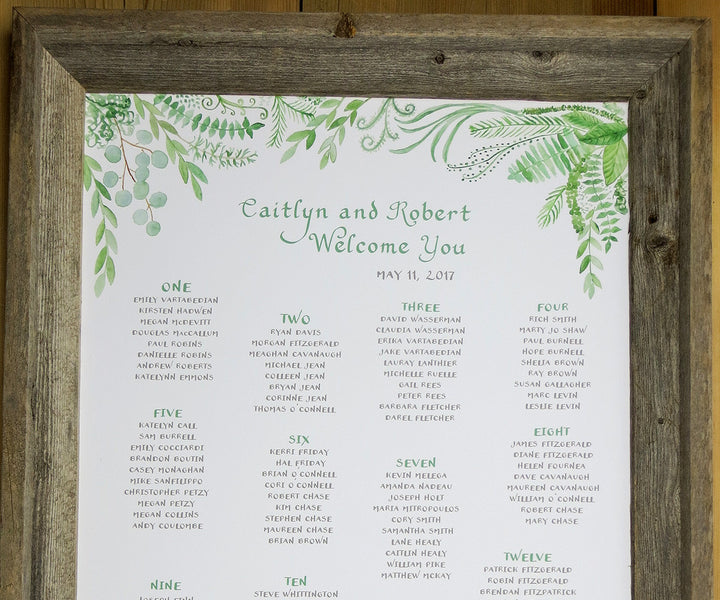 Caitlyn and Robert
Welcome You
MAY 11, 2017
ONE
EMILY VARTABEDIAN
KIRSTEN HADWEN
MEGAN McDEVITT
DOUGLAS MacCALLUM
PAUL ROBINS
DANIELLE ROBINS
ANDREW ROBERTS
KATELYNN EMMONS
TWO
RYAN DAVIS
MORGAN FITZGERALD
MEAGHAN CAVANAUGH
MICHAEL JEAN
COLLEEN JEAN
BRYAN JEAN
CORINNE JEAN
THOMAS O'CONNELL
THREE
DAVID WASSERMAN
CLAUDIA WASSERMAN
ERIKA VARTABEDIAN
JAKE VARTABEDIAN
LAURAY LANTHIER
MICHELLE RUELLE
GAIL REES
PETER REES
BARBARA FLETCHER
DAREL FLETCHER
FOUR
RICH SMITH
MARTY JO SHAW
PAUL BURNELL
HOPE BURNELL
SHELIA BROWN
RAY BROWN
SUSAN GALLAGHER
MARC LEVIN
LESLIE LEVIN
FIVE
KATELYN CALL
SAM BURRELL
EMILY COCCIARDI
BRANDON BOUTIN
CASEY MONAGHAN
MIKE SANFILIPPO
CHRISTOPHER PETZY
MEGAN PETZY
MEGAN COLLINS
ANDY COULOMBE
SIX
KERRI FRIDAY
HAL FRIDAY
BRIAN O'CONNELL
CORI O'CONNELL
ROBERT CHASE
KIM CHASE
STEPHEN CHASE
MAUREEN CHASE
BRIAN BROWN
SEVEN
KEVIN MELEGA
AMANDA NADEAU
JOSEPH HOLT
MARIA MITROPOULOS
CORY SMITH
SAMANTHA SMITH
LANE HEALY
CAITLIN HEALY
WILLIAM PIKE
MATTHEW MCKAY
EIGHT
JAMES FITZGERALD
DIANE FITZGERALD
HELEN FOURNEA
DAVE CAVANAUGH
MAUREEN CAVANAUGH
WILLIAM O'CONNELL
ROBERT CHASE
MARY CHASE
NINE
JOSEPH FINN
TEN
STEVE WHITTINGTON
TWELVE
PATRICK FITZGERALD
ROBIN FITZGERALD
BRENDAN FITZPATRICK